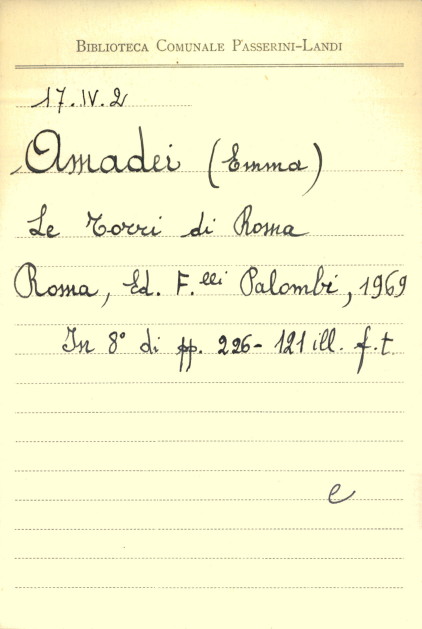 BIBLIOTECA COMUNALE PASSERINI-LANDI
17.IV.2
Amadei (Emma)
Le Torri di Roma
Roma, Ed. F.lli Palombi, 1969
In 8° di pp. 226- 121 ill. f.t.
e